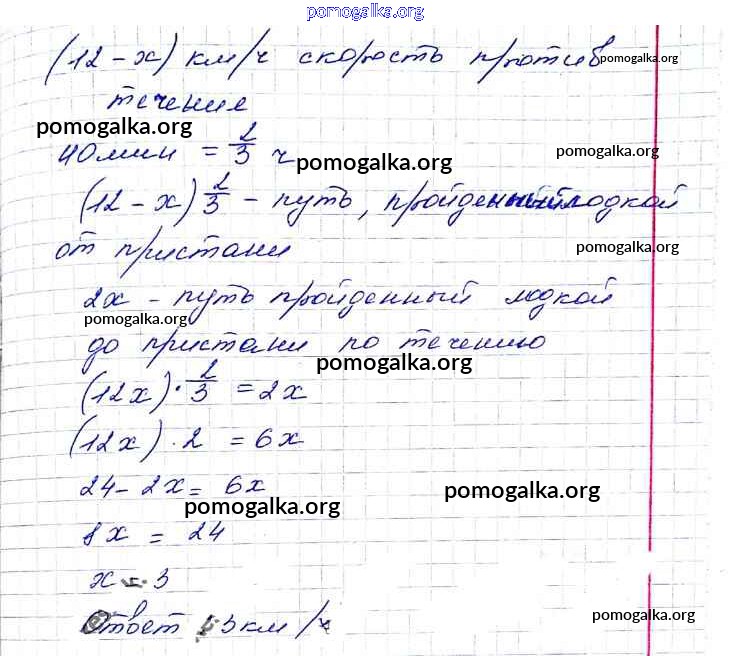 pomogalka.org
(12-x) км/ч скорость против pomogalka.org
течение
pomogalka.org
40мин = 2/3 ч pomogalka.org pomogalka.org
(12-x) 2/3 - путь, пройденный лодкой
от пристани pomogalka.org
2x - путь пройденный лодкой
pomogalka.org
до пристани по течению
pomogalka.org
(12x)·2/3 = 2x
(12x)·2 = 6x
24-2x= 6x pomogalka.org
pomogalka.org
8x = 24
x = 3
Ответ 3км/ч pomogalka.org